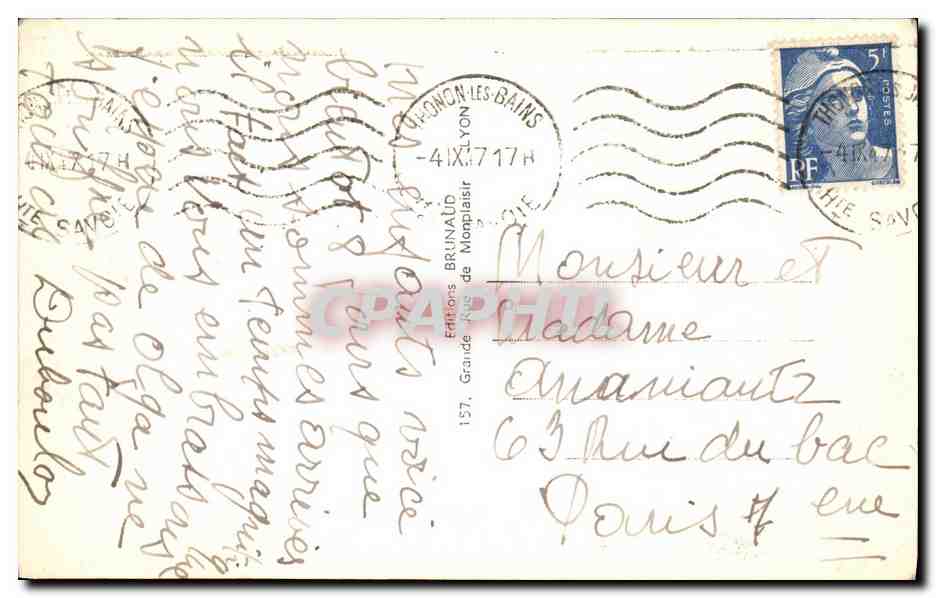 mes enfants voicé
bientot 8 jours que
nous sommes arrivés
il fait un temps magnifi
nous vous embrassons
j'espère de Olga ne
souffre pas tant
Dubouloz
THONON-LES-BAINS
-4 IX 47 17H
HTE SAVOIE
Editions BRUNAUD
157, Grande Rue de Monplaisir LYON
CPAPHIL
5F
POSTES
RF
THONON-LES-BAINS
-4 IX 47 17
HTE SAVOIE
Monsieur et
Madame
Anamiantz
63 Rue du bac
Paris 7 eme